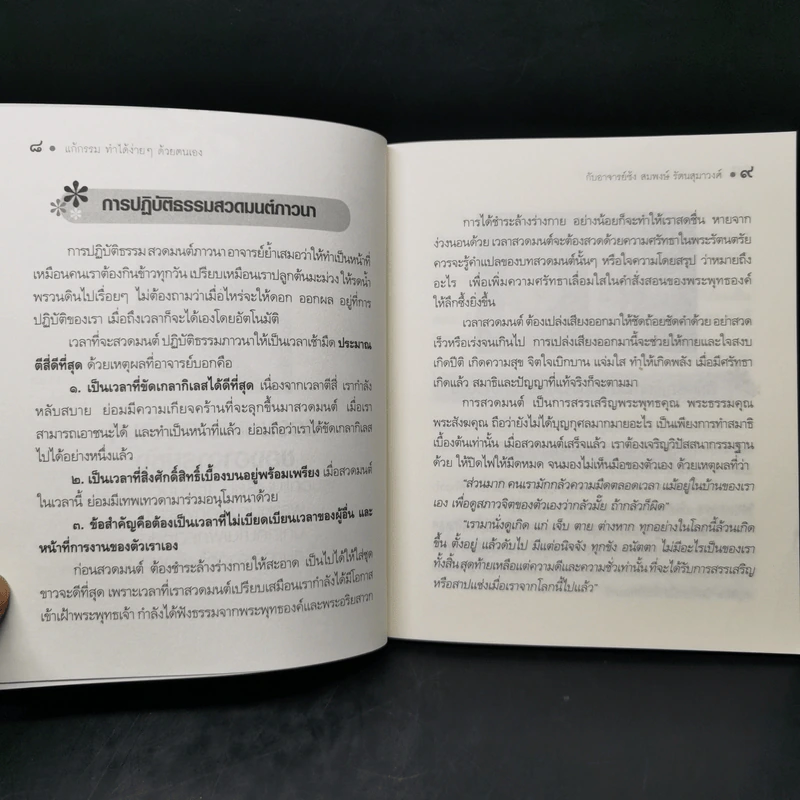 ๘ • แก้กรรม ทำได้ง่ายๆ ด้วยตนเอง
การปฏิบัติธรรมสวดมนต์ภาวนา
การปฏิบัติธรรม สวดมนต์ภาวนา อาจารย์ย้ำเสมอว่าให้ทำเป็นหน้าที่
เหมือนคนเราต้องกินข้าวทุกวัน เปรียบเหมือนเราปลูกต้นมะม่วง ให้รดน้ำ
พรวนดินไปเรื่อยๆ ไม่ต้องถามว่าเมื่อไหร่จะให้ดอก ออกผล อยู่ที่การ
ปฏิบัติของเรา เมื่อถึงเวลาก็จะได้เองโดยอัตโนมัติ
เวลาที่จะสวดมนต์ ปฏิบัติธรรมภาวนาให้เป็นเวลาเช้ามืด ประมาณ
ตีสี่ดีที่สุด ด้วยเหตุผลที่อาจารย์บอกคือ
๑. เป็นเวลาที่ขัดเกลากิเลสได้ดีที่สุด เนื่องจากเวลาตีสี่ เรากำลัง
หลับสบาย ย่อมมีความเกียจคร้านที่จะลุกขึ้นมาสวดมนต์ เมื่อเรา
สามารถเอาชนะได้ และทำเป็นหน้าที่แล้ว ย่อมถือว่าเราได้ขัดเกลากิเลส
ไปได้อย่างหนึ่งแล้ว
๒. เป็นเวลาที่สิ่งศักดิ์สิทธิ์เบื้องบนอยู่พร้อมเพรียง เมื่อสวดมนต์
ในเวลานี้ ย่อมมีเทพเทวดามาร่วมอนุโมทนาด้วย
๓. ข้อสำคัญคือต้องเป็นเวลาที่ไม่เบียดเบียนเวลาของผู้อื่น และ
หน้าที่การงานของตัวเราเอง
ก่อนสวดมนต์ ต้องชำระล้างร่างกายให้สะอาด เป็นไปได้ให้ใส่ชุด
ขาวจะดีที่สุด เพราะเวลาที่เราสวดมนต์เปรียบเสมือนเรากำลังได้มีโอกาส
เข้าเฝ้าพระพุทธเจ้า กำลังได้ฟังธรรมจากพระพุทธองค์และพระอริยสาวก
กับอาจารย์ชิง สมพงษ์ รัตนสุมาวงศ์ • ๙
การได้ชำระล้างร่างกาย อย่างน้อยก็จะทำให้เราสดชื่น หายจาก
ง่วงนอนด้วย เวลาสวดมนต์จะต้องสวดด้วยความศรัทธาในพระรัตนตรัย
ควรจะรู้คำแปลของบทสวดมนต์นั้นๆ หรือใจความโดยสรุป ว่าหมายถึง
อะไร เพื่อเพิ่มความศรัทธาเลื่อมใสในคำสั่งสอนของพระพุทธองค์
ให้ลึกซึ้งยิ่งขึ้น
เวลาสวดมนต์ ต้องเปล่งเสียงออกมาให้ชัดถ้อยชัดคำด้วย อย่าสวด
เร็วหรือเร่งจนเกินไป การเปล่งเสียงออกมานี้จะช่วยให้กายและใจสงบ
เกิดปีติ เกิดความสุข จิตใจเบิกบาน แจ่มใส ทำให้เกิดพลัง เมื่อมีศรัทธา
เกิดแล้ว สมาธิและปัญญาที่แท้จริงก็จะตามมา
การสวดมนต์ เป็นการสรรเสริญพระพุทธคุณ พระธรรมคุณ
พระสังฆคุณ ถือว่ายังไม่ได้บุญกุศลมากมายอะไร เป็นเพียงการทำสมาธิ
เบื้องต้นเท่านั้น เมื่อสวดมนต์เสร็จแล้ว เราต้องเจริญวิปัสสนากรรมฐาน
ด้วย ให้ปิดไฟให้มืดหมด จนมองไม่เห็นมือของตัวเอง ด้วยเหตุผลที่ว่า
"ส่วนมาก คนเรามักกลัวความมืดตลอดเวลา แม้อยู่ในบ้านของเรา
เอง เพื่อดูสภาวจิตของตัวเองว่ากลัวมั้ย ถ้ากลัวก็ผิด"
"เรามานั่งดูเกิด แก่ เจ็บ ตาย ต่างหาก ทุกอย่างในโลกนี้ล้วนเกิด
ขึ้น ตั้งอยู่ แล้วดับไป มีแต่อนิจจัง ทุกขัง อนัตตา ไม่มีอะไรเป็นของเรา
ทั้งสิ้น สุดท้ายเหลือแต่ความดีและความชั่วเท่านั้น ที่จะได้รับการสรรเสริญ
หรือสาปแช่งเมื่อเราจากโลกนี้ไปแล้ว"